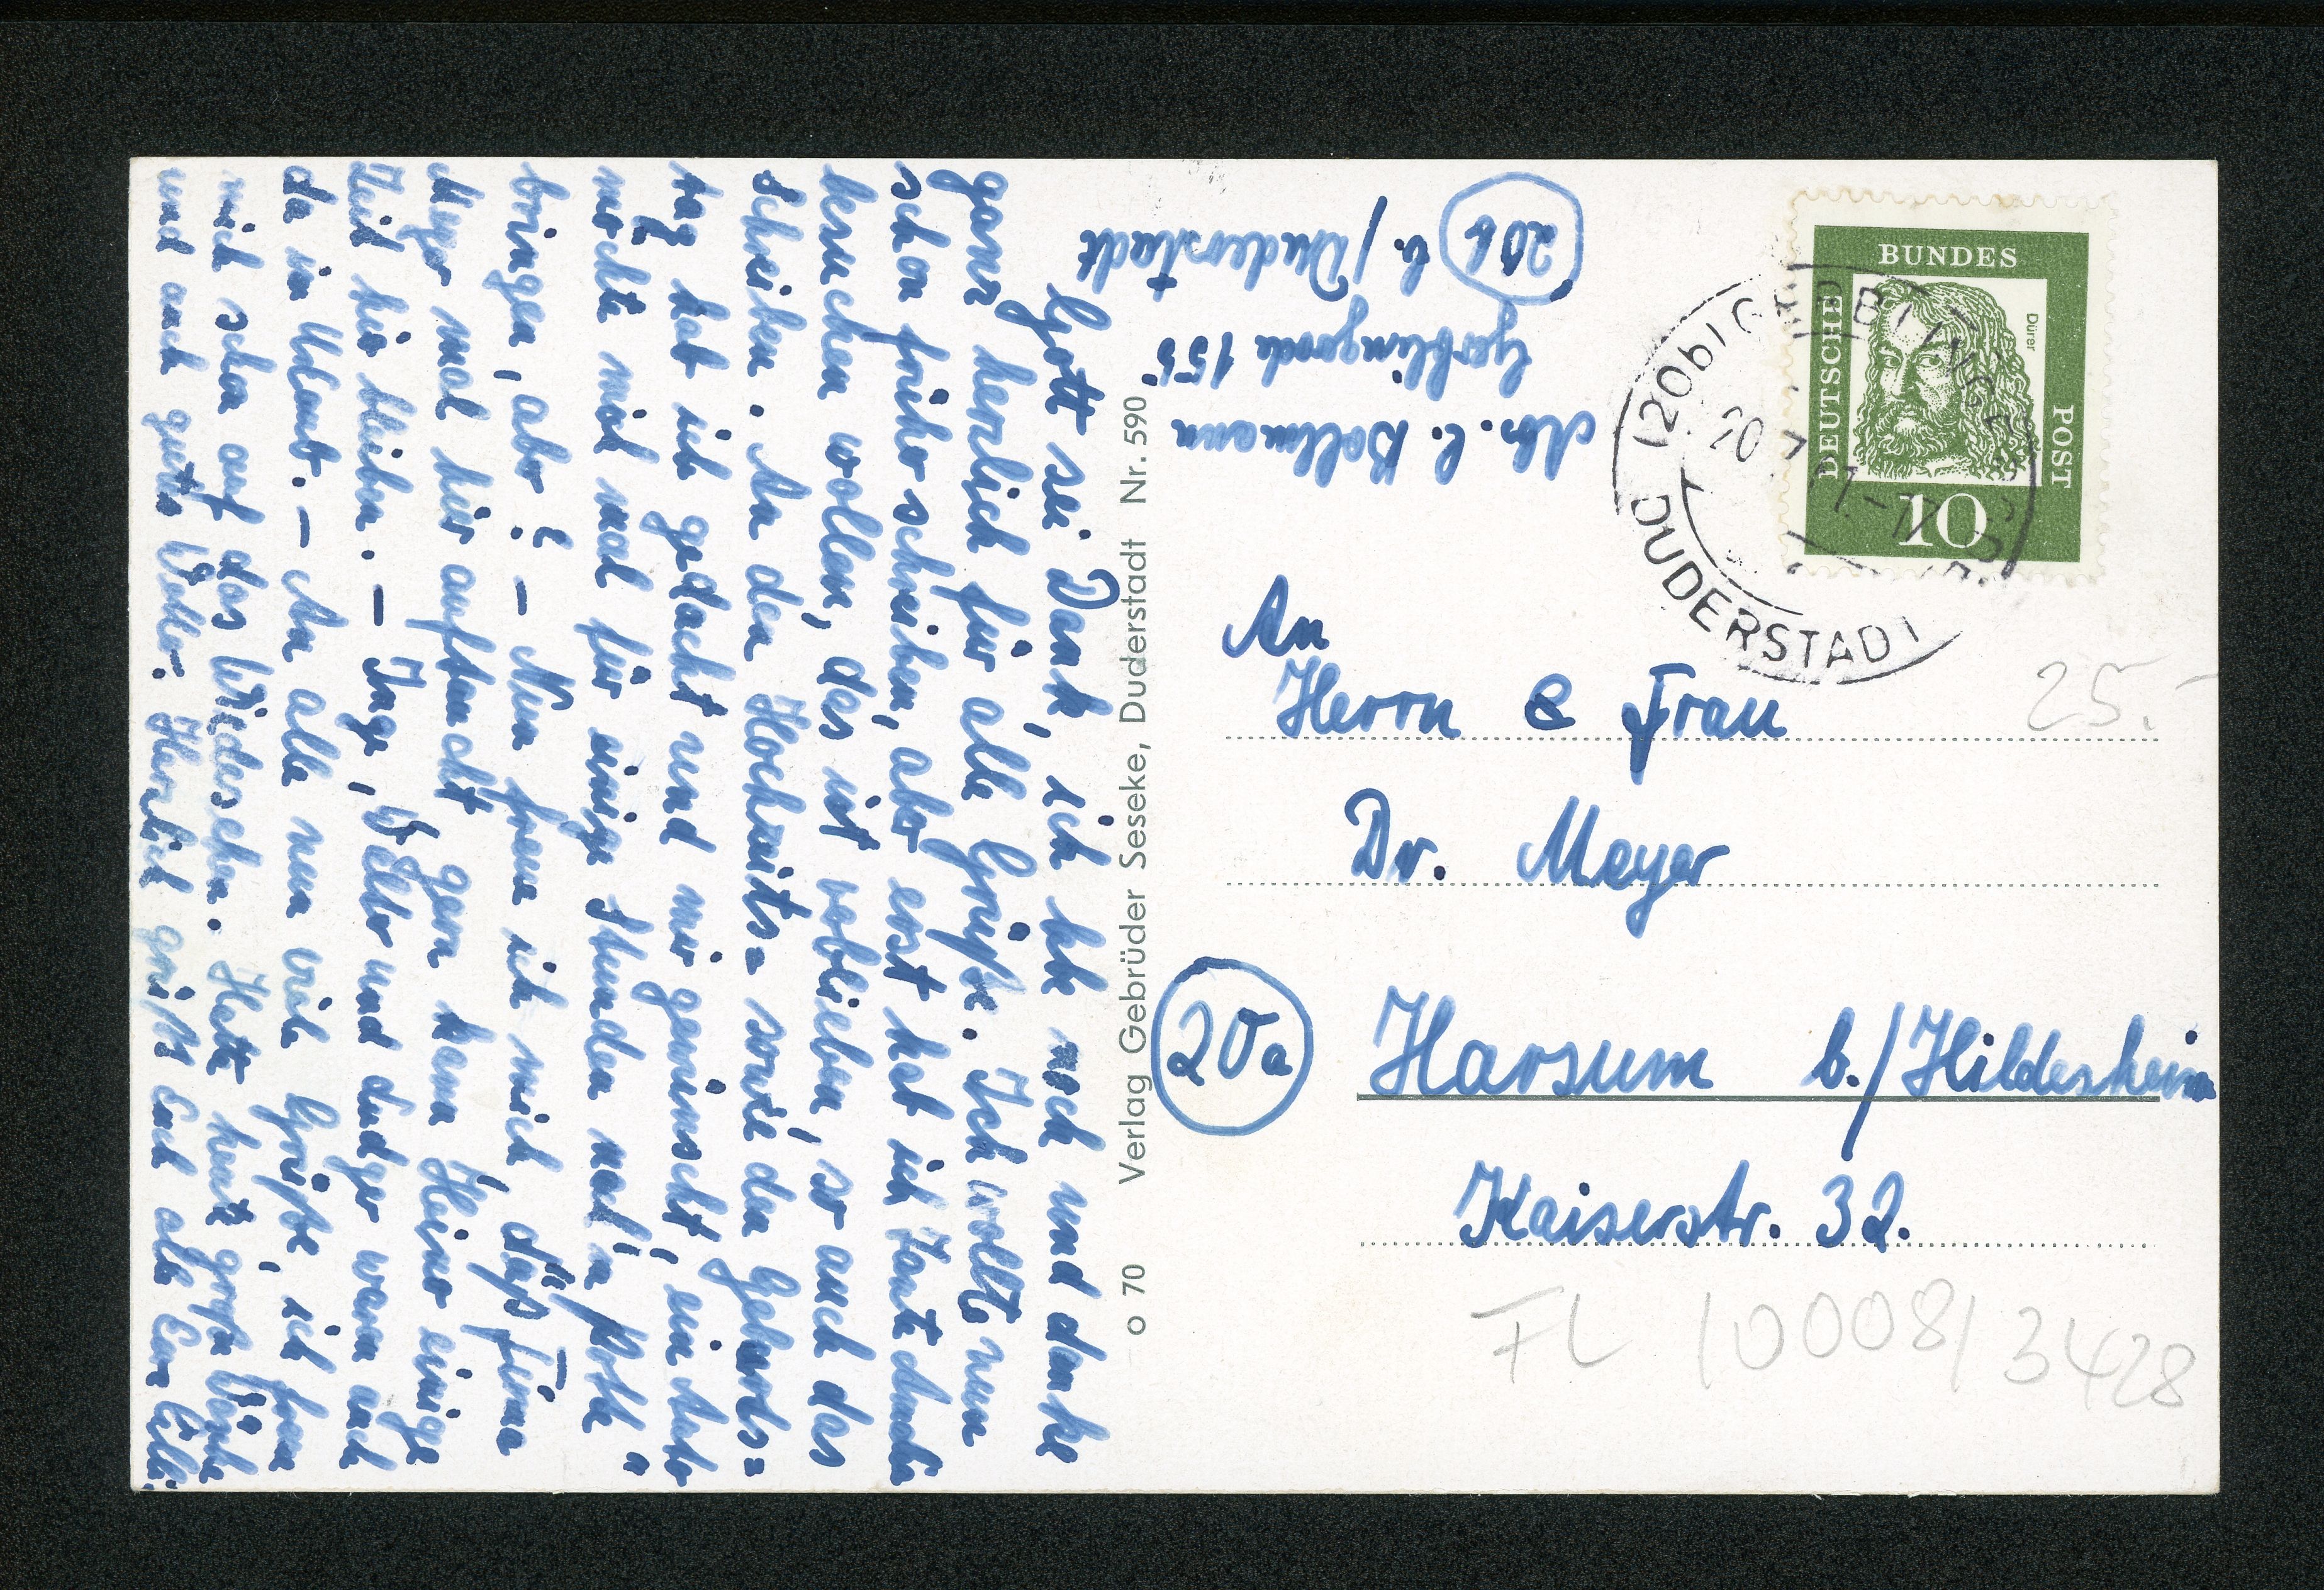 Gott sei Dank, ich lebe noch und danke
ganz herzlich für alle Grüße. Ich wollte nun
schon früher schreiben, aber erst hab ich Tante
besuchen wollen, das ist verblieben, so auch das
Schreiben. An den Hochzeits= sowie den Geburts=
tag hab ich gedacht und mir gewünscht, ein Auto
möchte mich mal für einige Stunden nach
bringen, aber ? – Nun freue ich mich, daß
Meyer mal hier auftaucht gern kann Heino einige
Zeit hier bleiben. – Inge, und Ludger waren auch
da in Urlaub. – An alle nun viele Grüße, ich freu
mich schon auf das Wiedersehen. Hatte heute große Wäsche
und auch gutes Wetter. Herzlich grüßt Euch alle
Verlag Gebrüder Seseke, Duderstadt Nr. 590
o 70
Abs. C. Bollmann
Gerblingerode 155
20b b./Duderstadt
DEUTSCHE BUNDES POST
Dürer
10
(20b) GERBLINGERODE
DUDERSTADT
An
Herrn & Frau
Dr. Meyer
20a Harsum b./Hildesheim
Kaiserstr. 32.
25.-
FL 10008/3428